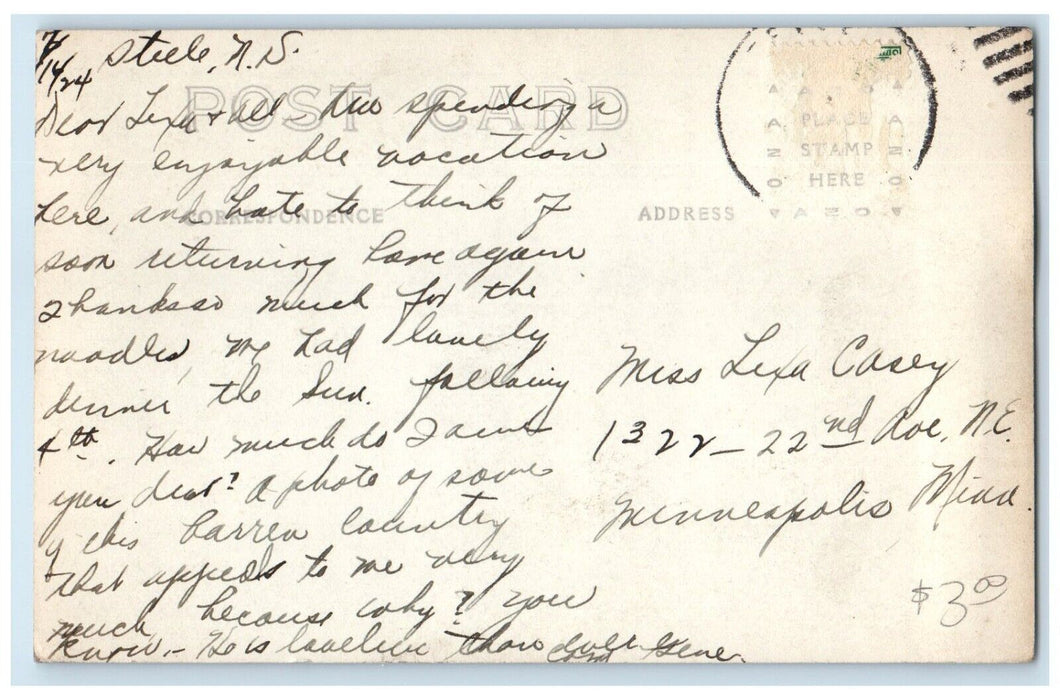 7/14/24 Steele, N.D.
POST CARD
Dear Lexa & all - Am spending a
very enjoyable vacation
here, and hate to think of
CORRESPONDENCE
ADDRESS
soon returning home again
Thanks so much for the
noodles, we had lovely
dinner the Sun. following
4th. How much do I owe
you dear? A photo of some
of this barren country
that appeals to me very
much, because why? You
know. - He is lovelier than ever
Gene.
PLACE
STAMP
HERE
AZO
Miss Lexa Casey
1322 - 22nd Ave. N.E.
Minneapolis Minn.
$3.00